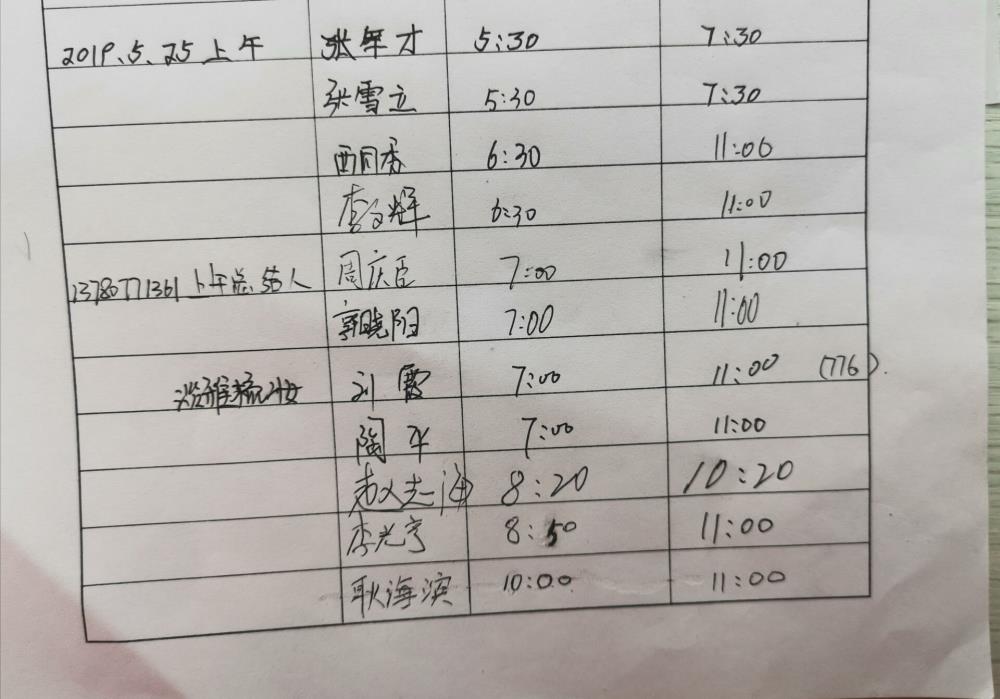 2019.5.25上午 张年才 5:30 7:30
张雪立 5:30 7:30
西同香 6:30 11:00
李文辉 6:30 11:00
13780771361上午总结人 周庆臣 7:00 11:00
郭晓阳 7:00 11:00
刘霞 7:00 11:00 (776)
陶平 7:00 11:00
赵志海 8:20 10:20
李光亨 8:50 11:00
耿海滨 10:00 11:00